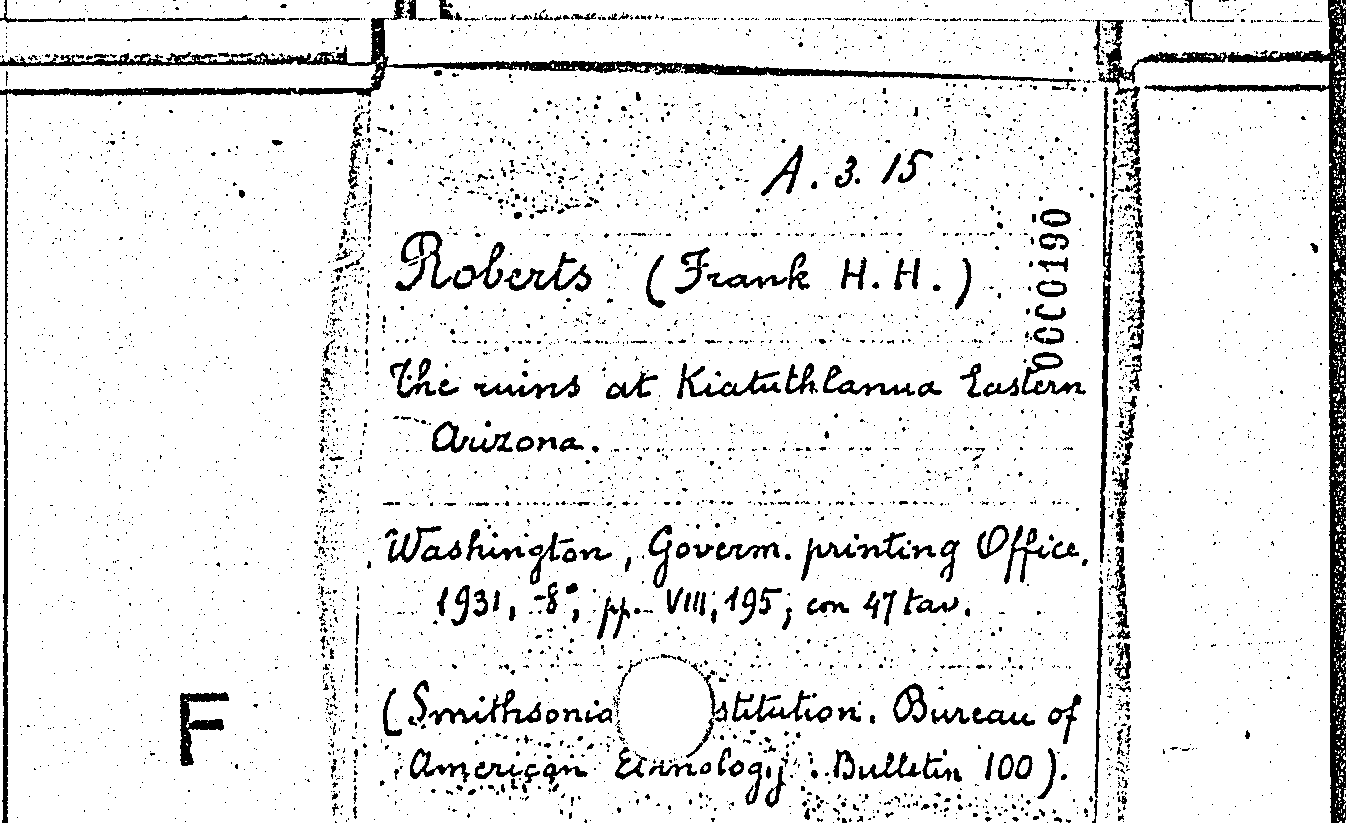 A. 3. 15
Roberts (Frank H. H.)
00000190
The ruins at Kiatuthlanua Eastern
Arizona.
Washington, Governm. printing Office.
1931, -8°, pp. VIII, 195; con 47 tav.
(Smithsonia stitution. Bureau of
American Ethnology. Bulletin 100).
F